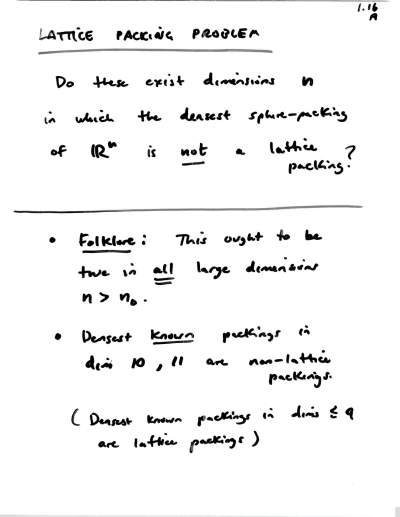 1.16
A
LATTICE PACKING PROBLEM
Do these exist dimensions n
in which the densest sphere-packing
of ℝⁿ is not a lattice
packing?
• Folklore: This ought to be
true in all large dimensions
n > n₀.
• Densest known packings in
dims 10, 11 are non-lattice
packings.
(Densest known packings in dims ≤ 9
are lattice packings)